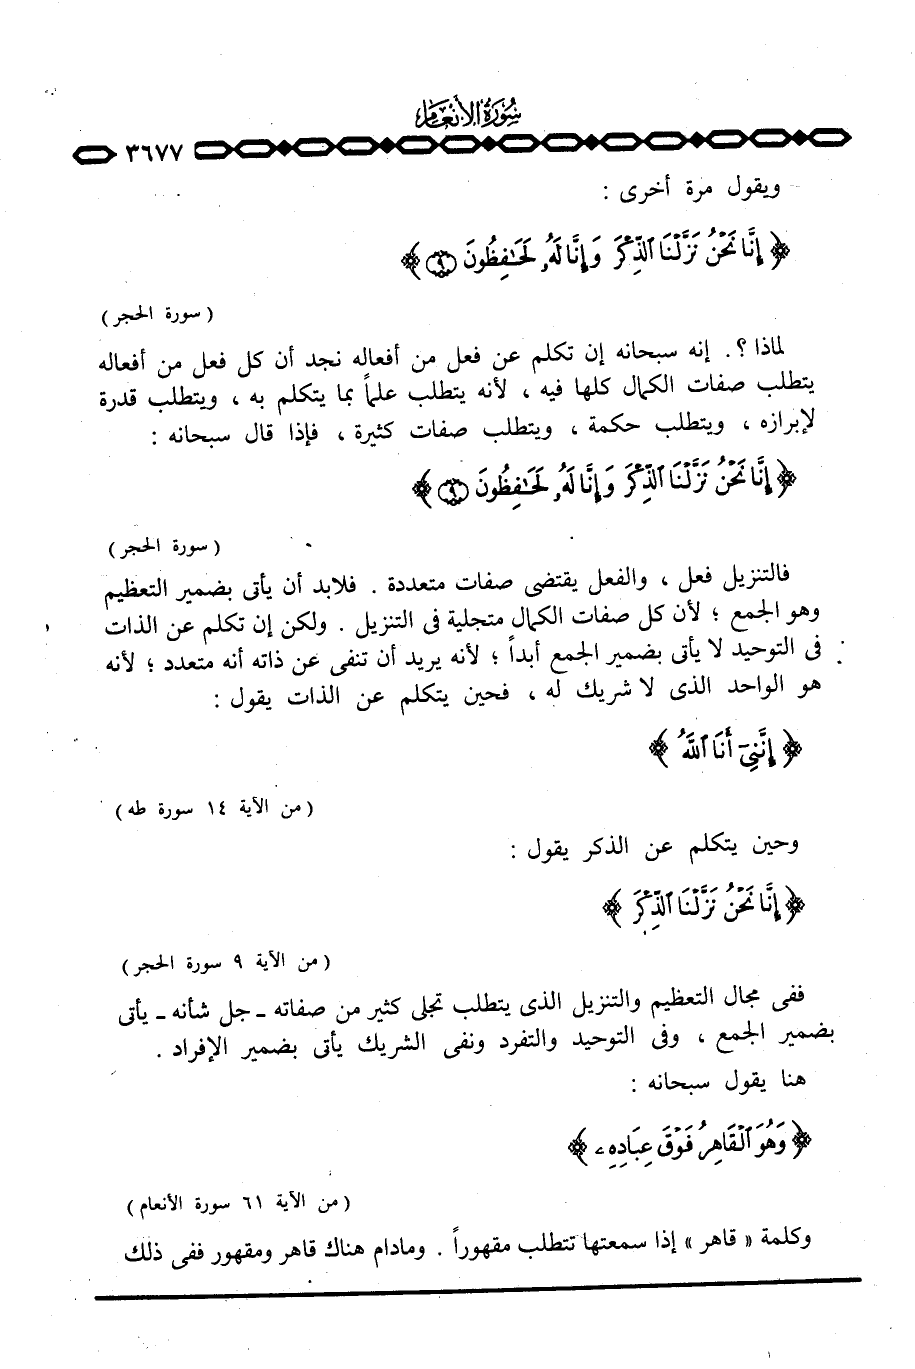 سُورَةُ الأَنْعَامِ
٣٦٧٧
ويقول مرة أخرى :
﴿ إِنَّا نَحْنُ نَزَّلْنَا ٱلذِّكْرَ وَإِنَّا لَهُۥ لَحَٰفِظُونَ ٩ ﴾
( سورة الحجر )
لماذا ؟ . إنه سبحانه إن تكلم عن فعل من أفعاله نجد أن كل فعل من أفعاله
يتطلب صفات الكمال كلها فيه ، لأنه يتطلب علماً بما يتكلم به ، ويتطلب قدرة
لإبرازه ، ويتطلب حكمة ، ويتطلب صفات كثيرة ، فإذا قال سبحانه :
﴿ إِنَّا نَحْنُ نَزَّلْنَا ٱلذِّكْرَ وَإِنَّا لَهُۥ لَحَٰفِظُونَ ٩ ﴾
( سورة الحجر )
فالتنزيل فعل ، والفعل يقتضى صفات متعددة . فلابد أن يأتى بضمير التعظيم
وهو الجمع ؛ لأن كل صفات الكمال متجلية فى التنزيل . ولكن إن تكلم عن الذات
فى التوحيد لا يأتى بضمير الجمع أبداً ؛ لأنه يريد أن تنفى عن ذاته أنه متعدد ؛ لأنه
هو الواحد الذى لا شريك له ، فحين يتكلم عن الذات يقول :
﴿ إِنَّنِىٓ أَنَا ٱللَّهُ ﴾
( من الآية ١٤ سورة طه )
وحين يتكلم عن الذكر يقول :
﴿ إِنَّا نَحْنُ نَزَّلْنَا ٱلذِّكْرَ ﴾
( من الآية ٩ سورة الحجر )
ففى مجال التعظيم والتنزيل الذى يتطلب تجلى كثير من صفاته ـ جل شأنه ـ يأتى
بضمير الجمع ، وفى التوحيد والتفرد ونفى الشريك يأتى بضمير الإفراد .
هنا يقول سبحانه :
﴿ وَهُوَ ٱلْقَاهِرُ فَوْقَ عِبَادِهِۦ ﴾
( من الآية ٦١ سورة الأنعام )
وكلمة « قاهر » إذا سمعتها تتطلب مقهوراً . ومادام هناك قاهر ومقهور ففى ذلك